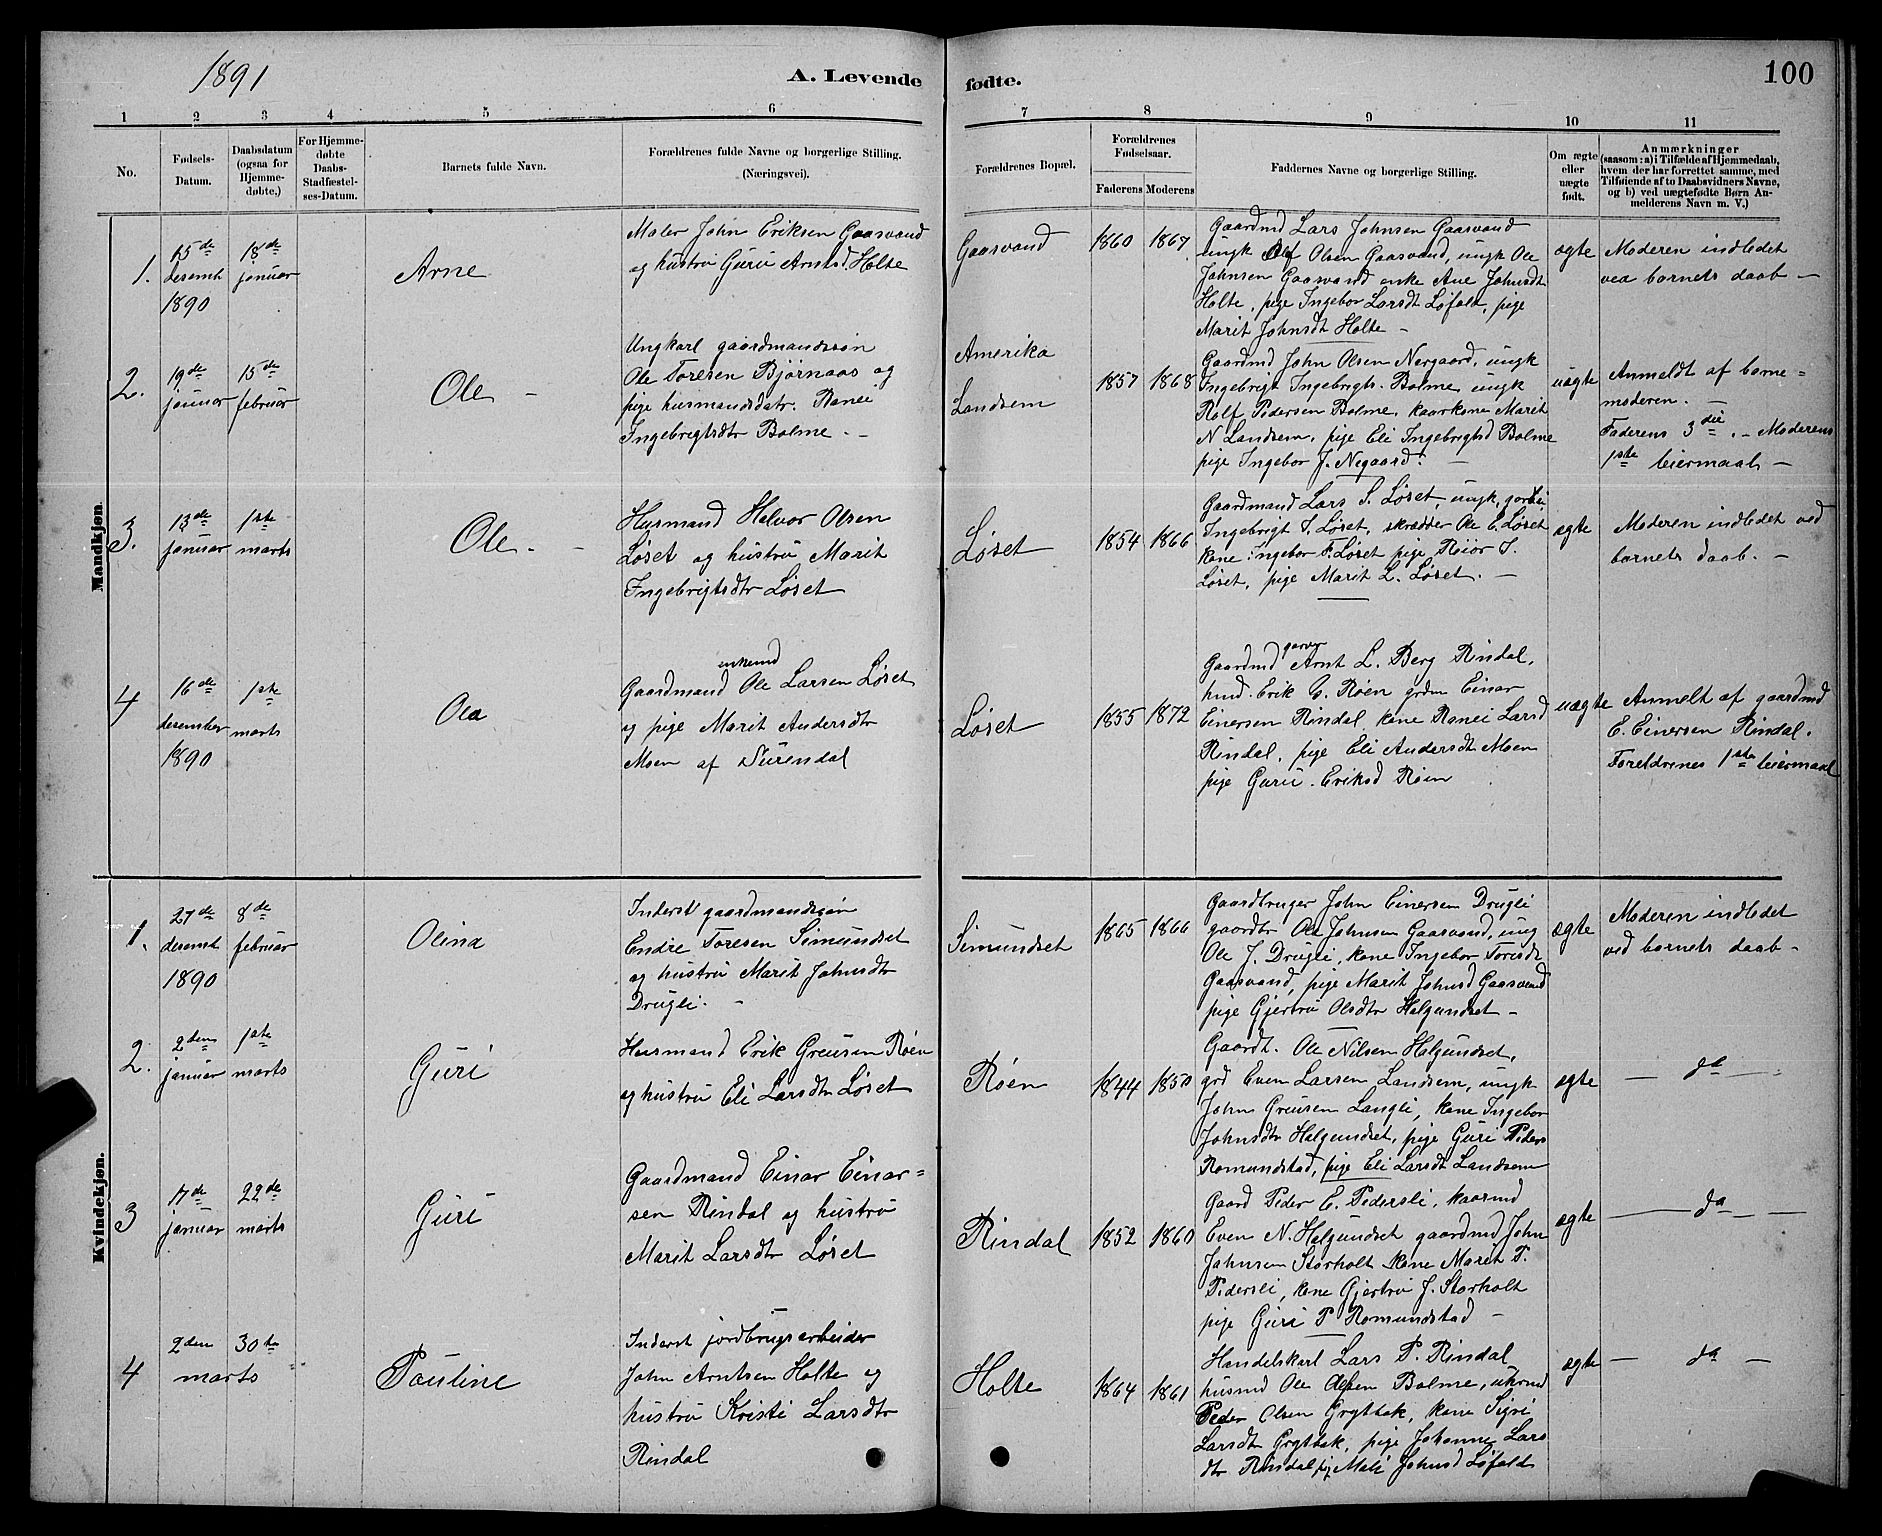 1891
A. Levende
fødte.
100
1 2 3 4 5 6
7 8 9 10 11
No.
Fødsels-
Datum.
Daabsdatum
(ogsaa for
Hjemme-
døbte.)
For Hjemme-
døbte
Daabs-
Stadfæstel-
ses-Datum.
Barnets fulde Navn.
Forældrenes fulde Navne og borgerlige Stilling.
(Næringsvei).
Forældrenes Bopæl.
Forældrenes
Fødselsaar.
Faderens
Moderens
Faddernes Navne og borgerlige Stilling.
Om ægte
eller
uægte
født.
Anmærkninger
(saasom: a) i Tilfælde af Hjemmedaab,
hvem der har forrettet samme, med
Tilføiende af to Daabsvidners Navne,
og b) ved uægtefødte Børn An-
melderens Navn m. V.)
Mandkjøn.
1.
15de
desembr
1890
18de
januar
Arne
Maler John Eriksen Gaasvand
og hustru Guru Arntsd Holte
Gaasvand
1860
1867
Gaardmd Lars Johnsen Gaasvand
ungk Olsen Gaasvand, ungk Ole
Johnsen Gaasvand enke Ane Johnsdt
Holte, pige Ingebor Larsdt Løfald, pige
Marit Johnsdt Holte –
ægte
Moderen indledet
ved barnets daab –
2.
19de
januar
15de
februar
Ole –
Ungkarl gaardmandssøn
Ole Toresen Bjørnaas og
pige husmandsdatr. Ranei
Ingebrigtsdtr Bolme. –
Amerika
Landsem
1857
1868
Gaardmd John Olsen Nergaard, ungk
Ingebrigt Ingebrigts. Bolme, ungk
Rolf Pedersen Bolme, kaarkone Marit
N Landsem, pige Eli Ingebrigtsd Bolme
pige Ingebor J. Negaard. –
uægte
Anmeldt af barne=
moderen. –
Faderens 3die. – Moderens
1ste leiermaal –
3.
13de
januar
1ste
marts
Ole. – –
Husmand Halvor Olsen
Løset og hustru Marit
Ingebrigtsdtr Løset
Løset
1854
1866
Gaardmand Lars S. Løset, ungk,
Ingebrigt I. Løset, skrædder Ole E. Løset
kone Ingebor F. Løset pige Roior I.
Løset, pige Marit L. Løset. –
ægte
Moderen indledet ved
barnets daab. –
4
16de
desember
1890
1ste
marts
Ola
enkemd
Gaardmand Ole Larsen Løset
og pige Marit Andersdtr
Moen af Surendal
Løset
1855
1872
garver
Gaardmd Arnt L. Berg Rindal,
husmd. Erik G. Røen grdm Einar
Einersen Rindal, kone Ranei Larsd
Rindal, pige Eli Andersdt Moen
pige Guru. Eriksd Røen
uægte
Anmelt af gaardmd
E. Einersen Rindal.
Foreldrenes 1ste leiermaal
Kvindekjøn.
1.
27de
desembr
1890
8de
februar
Olina
Inderst gaardmandssøn
Endre Toresen Simundset
og hustru Marit Johnsdtr
Drugli. –
Simundset
1865
1866
Gaardbruger John Einersen Drugli
gaardbr Ole Johnsen Gaasvand, ung
Ole J. Drugli, kone Ingebor Toresdt
Gaasvand, pige Marit Johnsd Gaasvand
pige Gjertru Olsdtr Halgundset –
ægte
Moderen indledet
ved barnets daab –
2.
2den
januar
1ste
marts
Guri
Husmand Erik Greusen Røen
og hustru Eli Larsdtr Løset
Røen
1844
1850
Gaardt. Ole Nilsen Halgundset,
grd Even Larsen Landsem, ungk
John Greusen Langli, kone Ingebor
Johnsdtr Halgundset, pige Guri Peders
Romundstad, pige Eli Larsdt Landsem
ægte
— da — –
3
17de
januar
22de
marts
Guri
Gaardmand Einar Einar=
sen Rindal og hustru
Marit Larsdtr Løset
Rindal
1852
1860
Gaard Peder E. Pedersli, kaarmd
Even N. Halgundset gaardmd John
Johnsen Storholt kone Marit P.
Pedersli, kone Gjertru J. Storholt
pige Guri P Romundstad –
ægte
— da — –
4
2den
marts
30te
Pauline
Inderst jordbrugsarbeider
John Arntsen Holte og
hustru Kristi Larsdtr
Rindal
Holte
1864
1861
Handelskarl Lars P. Rindal
husmd Ole Olsen Bolme, ukrmd
Peder Olsen Gryttbak, kone Sigri
Larsdt Gryttbak, pige Johanne Lars
dtr Rindal, pig Mali Johnsd Løfald
ægte
— da —